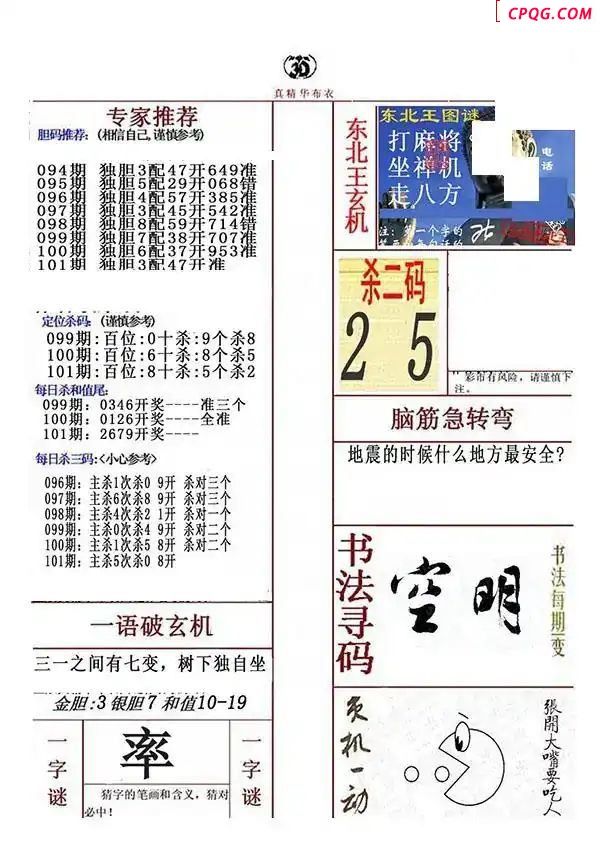 CPQG.COM
3D
真精华布衣
专家推荐
胆码推荐:(相信自己,谨慎参考)
094期 独胆3配47开649准
095期 独胆5配29开068错
096期 独胆4配57开385准
097期 独胆3配45开542准
098期 独胆8配59开714错
099期 独胆7配38开707准
100期 独胆6配37开953准
101期 独胆3配47开准
定位杀码:(谨慎参考)
099期:百位:0十杀:9个杀8
100期:百位:6十杀:8个杀5
101期:百位:8十杀:5个杀2
每日杀和值尾:
099期: 0346开奖----准三个
100期: 0126开奖----全准
101期: 2679开奖----
每日杀三码:<小心参考>
096期: 主杀1次杀0 9开 杀对三个
097期: 主杀6次杀8 9开 杀对三个
098期: 主杀4次杀2 1开 杀对一个
099期: 主杀0次杀4 9开 杀对二个
100期: 主杀1次杀5 8开 杀对二个
101期: 主杀5次杀0 8开
一语破玄机
三一之间有七变,树下独自坐
金胆:3 银胆7 和值10-19
一字谜
率
猜字的笔画和含义,猜对
必中!
一字谜
东北王玄机
东北王图谜
打麻将
坐禅机
走八方
电话
注:第一个字的
杀二码
2 5
彩市有风险,请谨慎下
注。
脑筋急转弯
地震的时候什么地方最安全?
书法寻码
空明
书法每期一变
玄机一动
張開大嘴要吃人